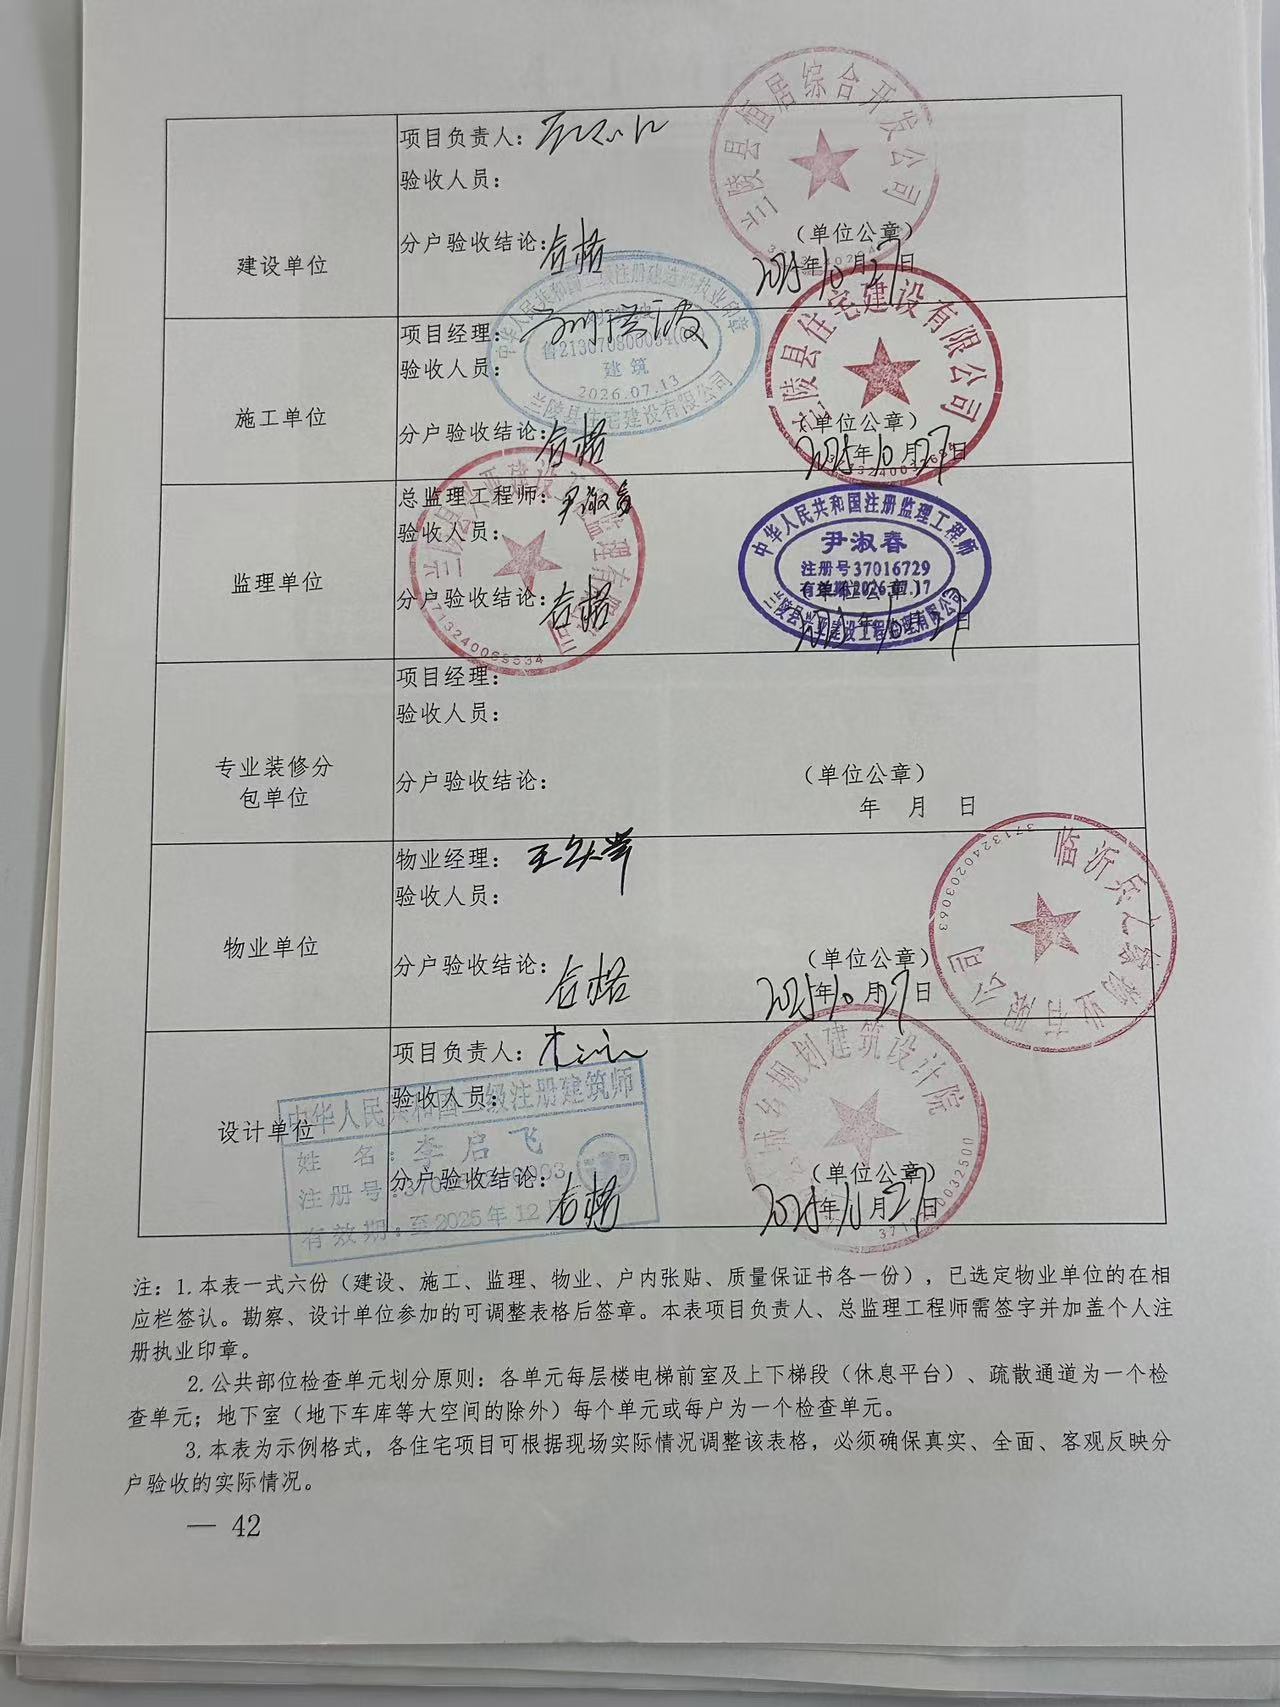 兰陵县宜居综合开发公司
建设单位
项目负责人:
验收人员:
分户验收结论:合格
(单位公章)
2025年10月27日
施工单位
项目经理:
验收人员:
中华人民共和国二级注册建造师执业印章
建筑
2026.07.13
兰陵县住宅建设有限公司
分户验收结论:合格
兰陵县住宅建设有限公司
(单位公章)
2025年10月27日
监理单位
总监理工程师:尹淑春
验收人员:
分户验收结论:合格
中华人民共和国注册监理工程师
尹淑春
注册号37016729
有效期2026.07.17
兰陵县兴亚建设工程监理有限公司
(单位公章)
2025年10月27日
专业装修分
包单位
项目经理:
验收人员:
分户验收结论:
(单位公章)
年 月 日
物业单位
物业经理:
验收人员:
分户验收结论:合格
(单位公章)
2025年10月27日
3713240203063
设计单位
项目负责人:
验收人员:
分户验收结论:合格
中华人民共和国二级注册建筑师
姓 名:李启飞
注册号:
有效期:至2025年12
城乡规划建筑设计院
(单位公章)
2025年10月27日
注:1.本表一式六份(建设、施工、监理、物业、户内张贴、质量保证书各一份),已选定物业单位的在相
应栏签认。勘察、设计单位参加的可调整表格后签章。本表项目负责人、总监理工程师需签字并加盖个人注
册执业印章。
2.公共部位检查单元划分原则:各单元每层楼电梯前室及上下梯段(休息平台)、疏散通道为一个检
查单元;地下室(地下车库等大空间的除外)每个单元或每户为一个检查单元。
3.本表为示例格式,各住宅项目可根据现场实际情况调整该表格,必须确保真实、全面、客观反映分
户验收的实际情况。
— 42